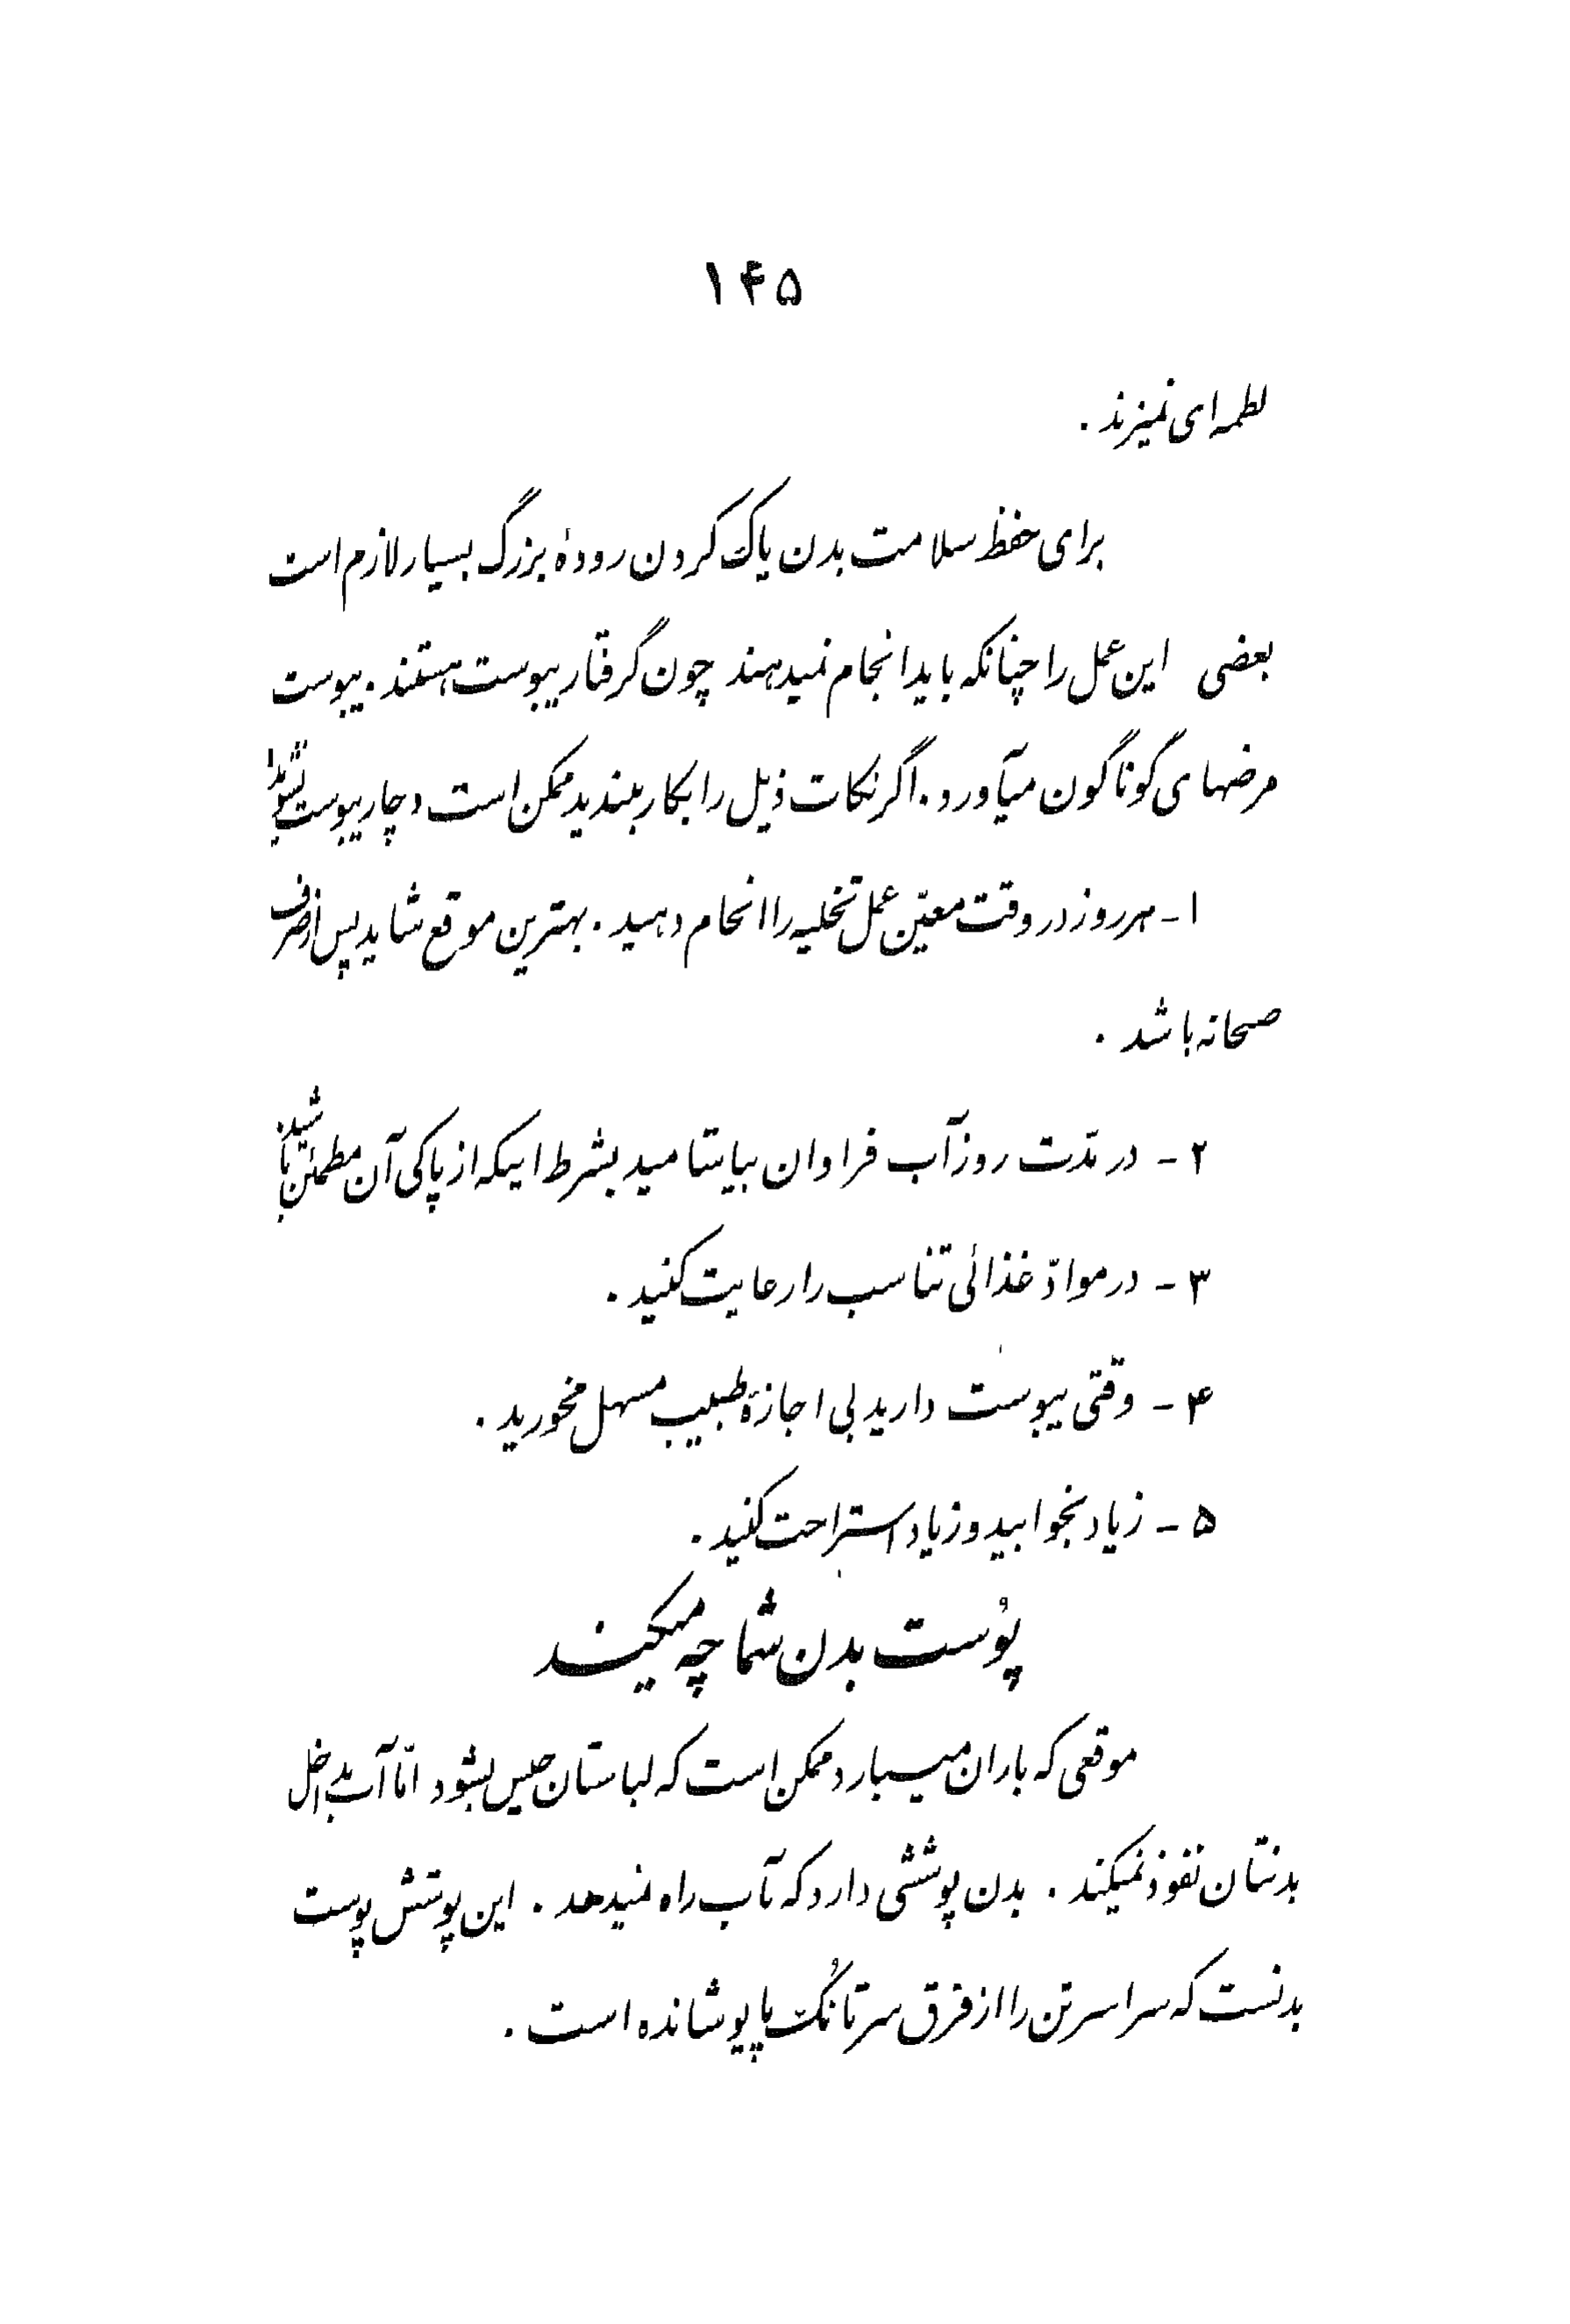 ۱۴۵
لطمه‌ای نمیزند.
برای حفظ سلامت بدن پاک کردن رودهٔ بزرگ بسیار لازم است
بعضی این عمل را چنانکه باید انجام نمیدهند چون گرفتار یبوست هستند. یبوست
مرضهای گوناگون میآورد. اگر نکات ذیل را بکار بندید ممکن است دچار یبوست نشوید:
۱- هر روز در وقت معیّن عمل تخلیه را انجام دهید. بهترین موقع شاید پس از صرف
صبحانه باشد.
۲- در مدّت روز آب فراوان بیاشامید بشرط اینکه از پاکی آن مطمئن باشید.
۳- در موادّ غذائی تناسب را رعایت کنید.
۴- وقتی یبوست دارید بی اجازهٔ طبیب مسهل نخورید.
۵- زیاد بخوابید و زیاد استراحت کنید.
پوُست بدن شما چه میکند
موقعی که باران میبارد ممکن است که لباستان خیس بشود امّا آب بداخل
بدنتان نفوذ نمیکند. بدن پوششی دارد که آب راه نمیدهد. این پوشش پوست
بدنست که سراسر تن را از فرق سر تا نُک پا پوشانده است.